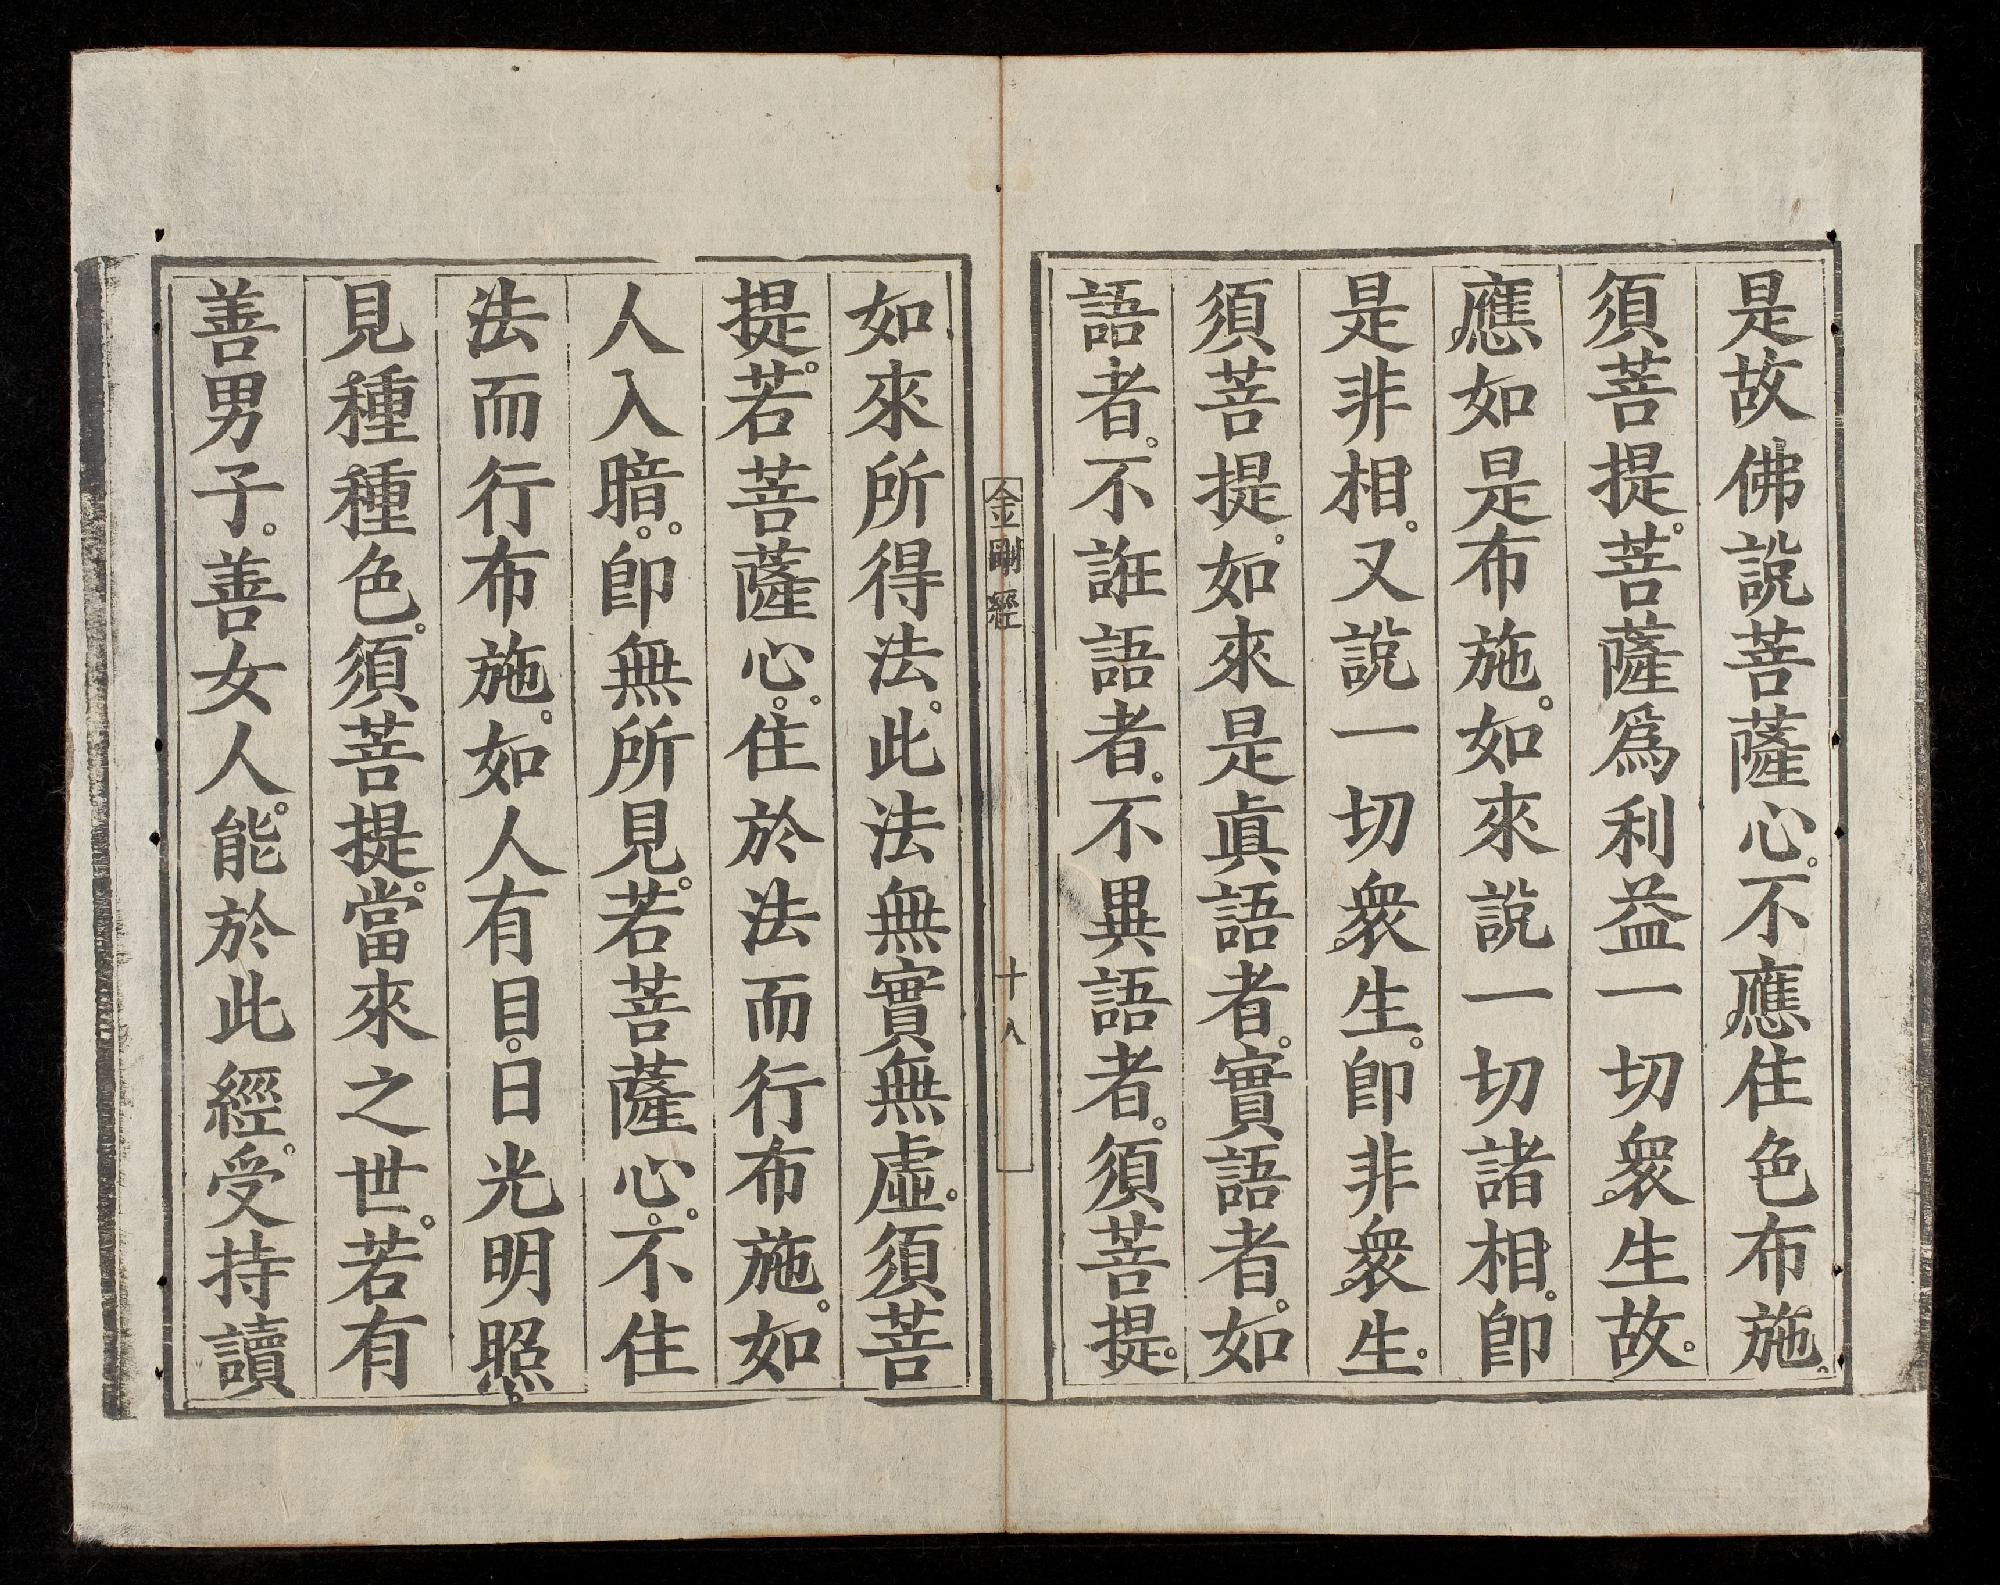 是故佛說菩薩心。不應住色布施。
須菩提。菩薩爲利益一切衆生故。
應如是布施。如來說一切諸相。卽
是非相。又說一切衆生。卽非衆生。
須菩提。如來是眞語者。實語者。如
語者。不誑語者。不異語者。須菩提。
金剛經
十八
如來所得法。此法無實無虛。須菩
提。若菩薩心。住於法而行布施。如
人入暗。卽無所見。若菩薩心。不住
法而行布施。如人有目。日光明照。
見種種色。須菩提。當來之世。若有
善男子。善女人。能於此經。受持讀